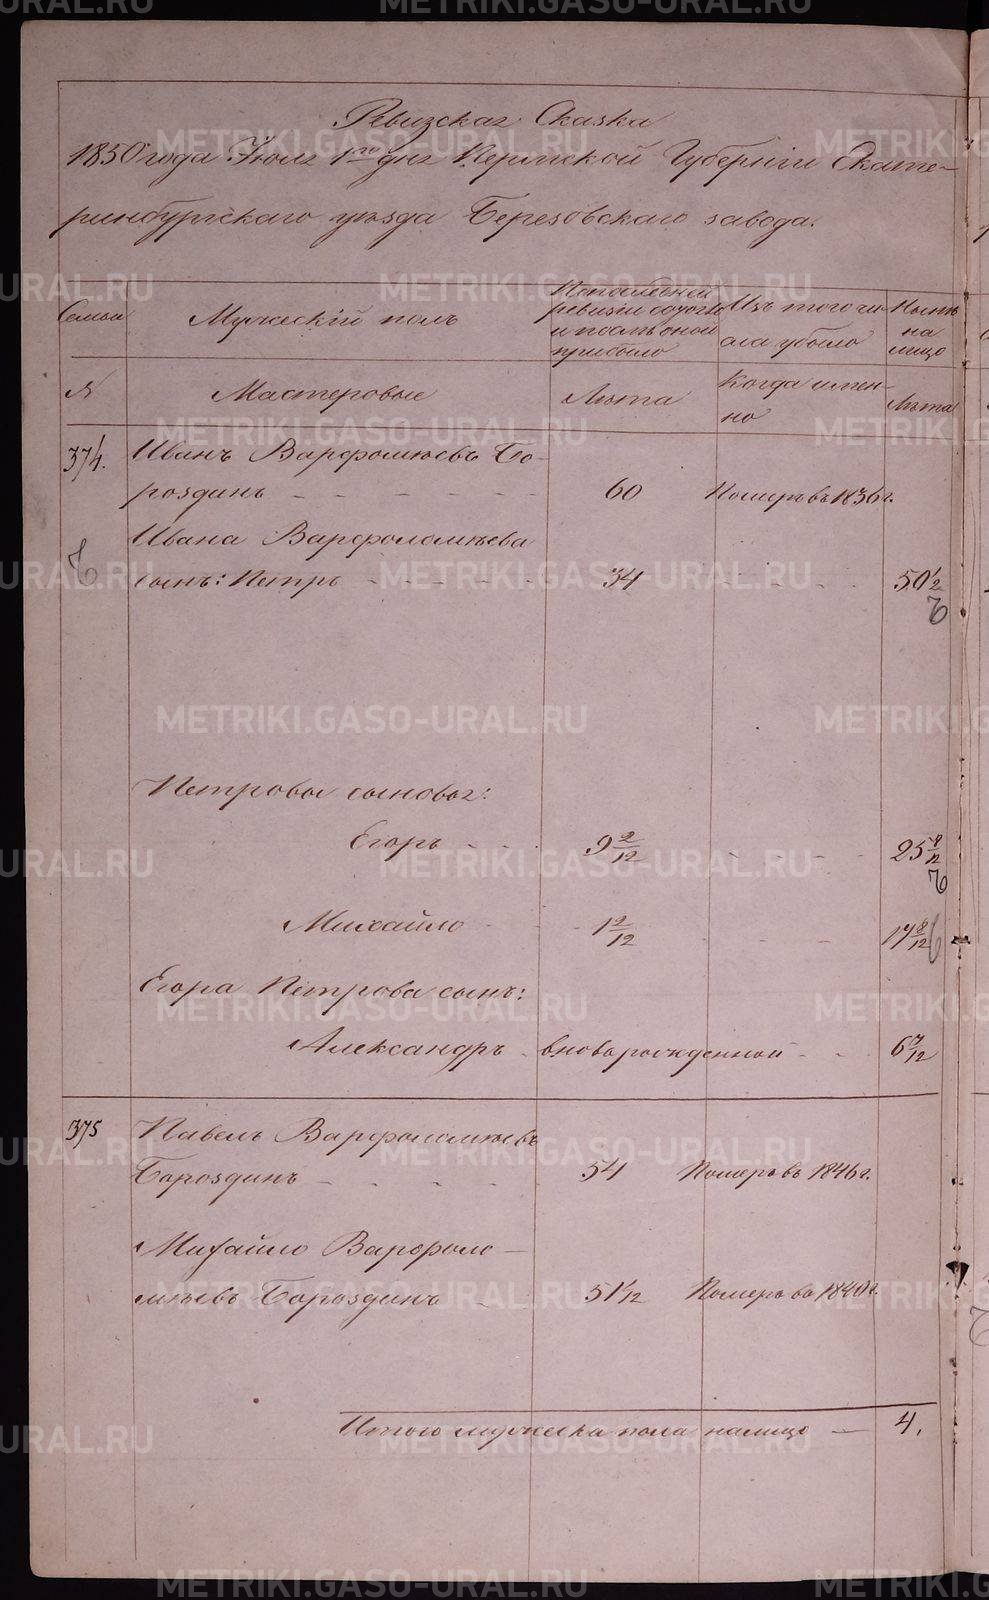 Ревизская Сказка
1850 года Июля 1го дня Пермской Губернiи Екате-
ринбургскаго уѣзда Березовскаго завода.
Семьи
Мужескiй полъ
По последней
ревизiи состояло
и послѣ оной
прибыло
Изъ того чи-
сла убыло
Ныне
на
лицо
№
Мастеровые
Лѣта
Когда имен-
но
Лѣта
374.
Иванъ Варфоломѣевъ Бо-
роздинъ
60
Померъ въ 1836 г.
Ивана Варфоломѣева
сынъ: Петръ
34
50 1/2
Петровы сыновья:
Егоръ
9 2/12
25 8/12
Михайло
1 2/12
17 8/12
Егора Петрова сынъ:
Александръ
вноворожденной
6 7/12
375
Павелъ Варфоломѣевъ
Бороздинъ
54
Померъ въ 1846 г.
Михайло Варфоло-
мѣевъ Бороздинъ
51 1/12
Померъ въ 1840 г.
Итого мужеска пола налицо
4.
METRIKI.GASO-URAL.RU